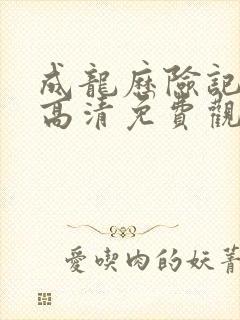 成龍歷險記
高清免費觀
愛喫肉的妖菁